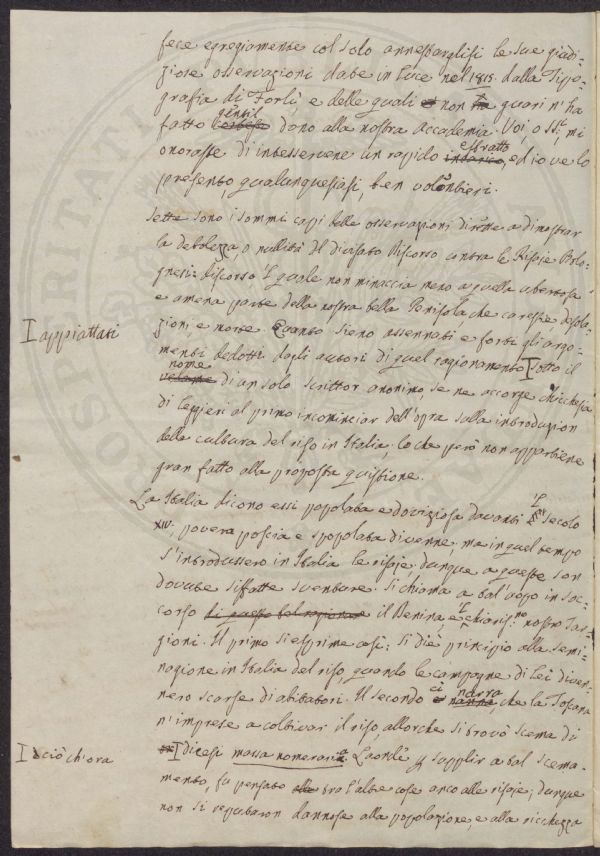 fece egregiamente col solo annestarglisi le sue giudi-
ziose osservazioni date in luce nel 1818. dalla Tipo-
grafia di Forlì, e delle quali non guari n'ha
fatto gentil dono alla nostra Accademia. Voi, o SS.ri, mi
onoraste di intesserne un rapido estratto, ed io ve lo
presento, qualunquesiasi, ben volontieri.
Sette sono i sommi capi delle osservazioni dirette a dimostrar
la debolezza, o nullità del divisato Discorso contra le Risaje Bolo-
gnesi: discorso il quale non minaccia meno a quella ubertosa
e amena parte della nostra bella Penisola che carestie, desola-
zioni, e morte. Quanto sieno assennati e forti gli argo-
I appiattati
menti dedotti dagli autori di quel ragionamento I sotto il
nome di un solo scrittor anonimo, se ne accorge chicchesia
di leggieri al primo incominciar dell'opra sulla introduzion
della cultura del riso in Italia, lo che però non appartiene
gran fatto alla proposta quistione.
La Italia dicono essi popolata e doviziosa davanti il secolo
XIV. povera poscia e spopolata divenne, ma in quel tempo
s'introdussero in Italia le risaje dunque a queste son
dovute siffatte sventure. Si chiama a tal'uopo in soc-
corso il Benina, e il chiariss.mo nostro Tar-
gioni. Il primo si esprime così: si diè principio alla semi-
nagione in Italia del riso, quando le campagne di lei diven-
nero scarse di abitatori. Il secondo ci narra, che la Toscana
n'imprese a coltivar il riso, allorchè si trovò scema di
I ciò ch'ora
I dicesi massa nomeraria. Laonde per supplir a tal scema-
mento, fu pensato tra l'altre cose anco alle risaje; dunque
non si reputaron dannose alla popolazione, e alla ricchezza